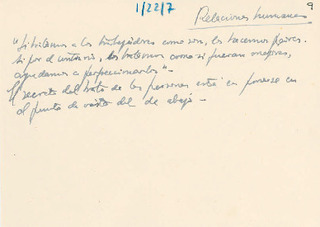 1/22/7
9
Relaciones humanas
"Si tratamos a los trabajadores como son, los hacemos peores.
Si por el contrario, los tratamos como si fueran mejores,
ayudamos a perfeccionarlos" -
El secreto del trato de las personas está en ponerse en
el punto de vista del de abajo -